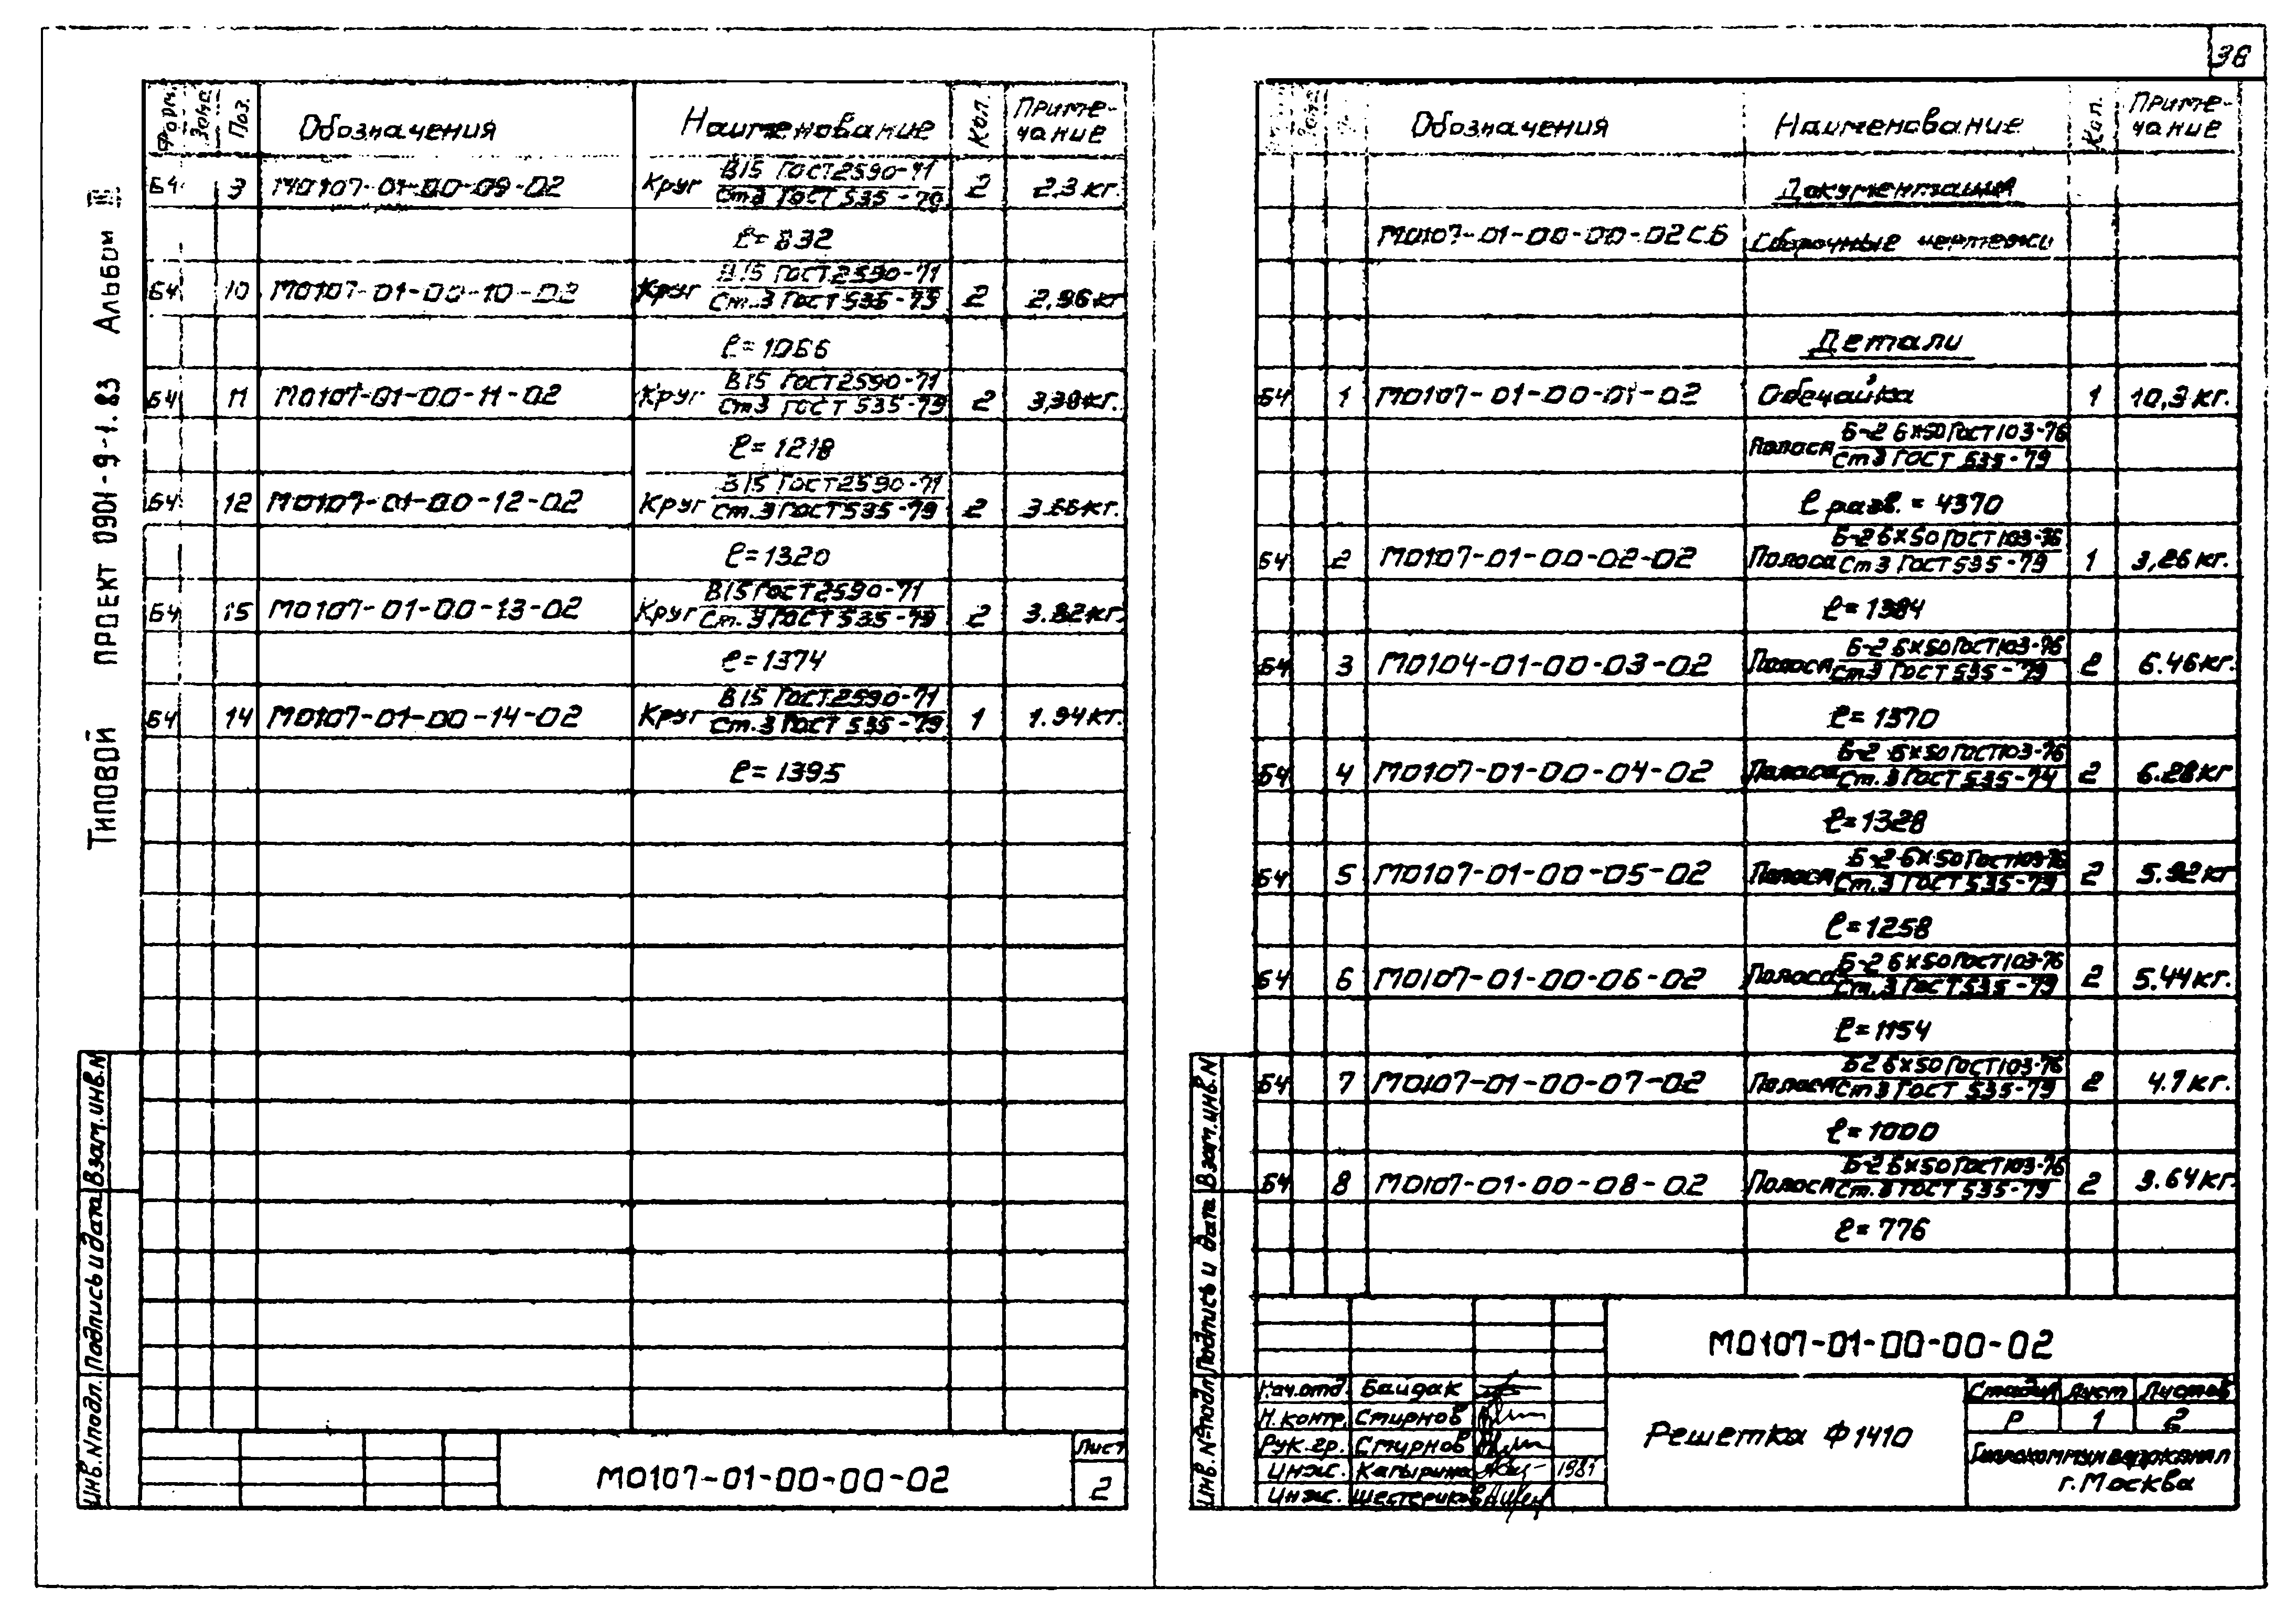 38
Типовой проект 0901-9-1.83 Альбом III
Форм. Зона Поз. Обозначения Наименование Кол. Примечание
Б4 9 М0107-01-00-09-02 Круг В15 ГОСТ 2590-71 / Ст3 ГОСТ 535-79 2 2,3 кг.
ℓ=832
Б4 10 М0107-01-00-10-02 Круг В15 ГОСТ 2590-71 / Ст.3 ГОСТ 535-79 2 2,96 кг
ℓ=1066
Б4 11 М0107-01-00-11-02 Круг В15 ГОСТ 2590-71 / Ст3 ГОСТ 535-79 2 3,38 кг.
ℓ=1218
Б4 12 М0107-01-00-12-02 Круг В15 ГОСТ 2590-71 / Ст.3 ГОСТ 535-79 2 3.66 кг.
ℓ=1320
Б4 15 М0107-01-00-13-02 Круг В15 ГОСТ 2590-71 / Ст.3 ГОСТ 535-79 2 3.82 кг.
ℓ=1374
Б4 14 М0107-01-00-14-02 Круг В15 ГОСТ 2590-71 / Ст.3 ГОСТ 535-79 1 1.94 кг.
ℓ=1395
Инв.N подл. Подпись и дата Взам.инв.N
М0107-01-00-00-02
Лист
2
Зона Обозначения Наименование Кол. Примечание
Документация
М0107-01-00-00-02СБ Сборочные чертежи
Детали
Б4 1 М0107-01-00-01-02 Обечайка 1 10,3 кг.
Полоса Б-2 6×50 ГОСТ 103-76 / Ст3 ГОСТ 535-79
ℓ разв. = 4370
Б4 2 М0107-01-00-02-02 Полоса Б-2 6×50 ГОСТ 103-76 / Ст3 ГОСТ 535-79 1 3,26 кг.
ℓ=1384
Б4 3 М0104-01-00-03-02 Полоса Б-2 6×50 ГОСТ 103-76 / Ст3 ГОСТ 535-79 2 6.46 кг.
ℓ=1370
Б4 4 М0107-01-00-04-02 Полоса Б-2 6×50 ГОСТ 103-76 / Ст.3 ГОСТ 535-74 2 6.28 кг
ℓ=1328
Б4 5 М0107-01-00-05-02 Полоса Б-2 6×50 ГОСТ 103-76 / Ст.3 ГОСТ 535-79 2 5.92 кг
ℓ=1258
Б4 6 М0107-01-00-06-02 Полоса Б-2 6×50 ГОСТ 103-76 / Ст.3 ГОСТ 535-79 2 5.44 кг.
ℓ=1154
Б4 7 М0107-01-00-07-02 Полоса Б2 6×50 ГОСТ 103-76 / Ст3 ГОСТ 535-79 2 4.7 кг.
ℓ=1000
Б4 8 М0107-01-00-08-02 Полоса Б-2 6×50 ГОСТ 103-76 / Ст.3 ГОСТ 535-79 2 3.64 кг.
ℓ=776
Инв.№ подл Подпись и дата Взам.инв.N
М0107-01-00-00-02
Нач.отд. Байдак
Н.контр. Смирнов
Рук.гр. Смирнов
Инж. Капырина 1981
Инж. Шестериков
Решетка Ф1410
Стадия Лист Листов
Р 1 2
Гипрокоммунводоканал
г.Москва